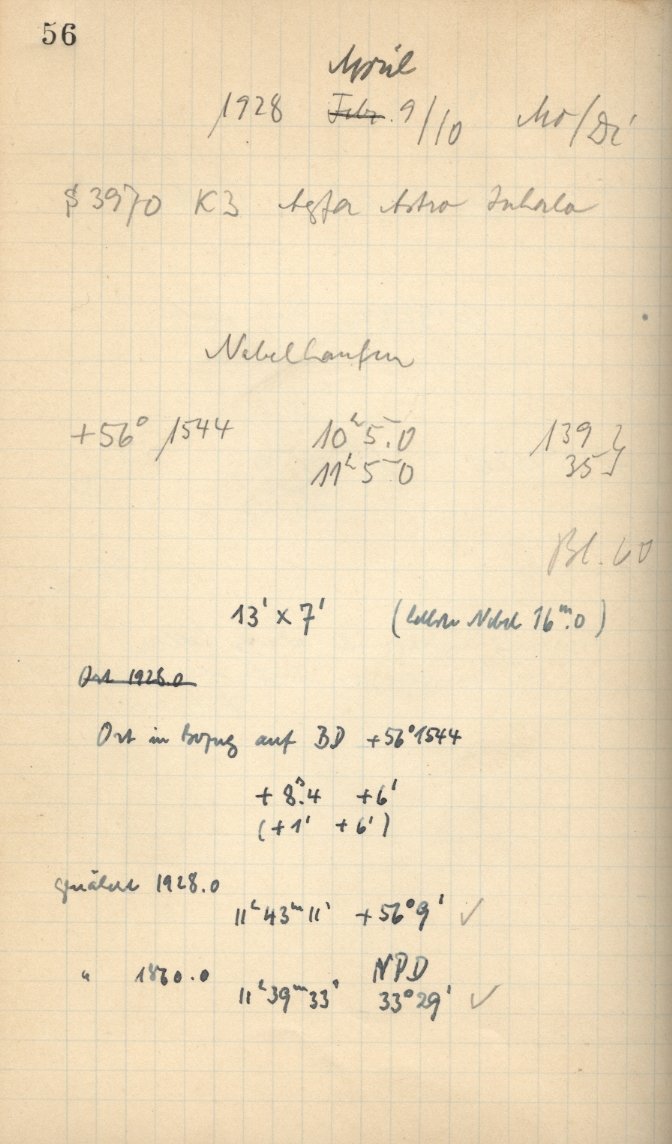 56
April
1928 Febr. 9/10 Mo/Di
S 3970 K3 Agfa Astro
Nebelhaufen
+56° 1544 10h 5.0 139
11h 5.0 35
Bl. 60
13' x 7' (hellster Nebel 16m.0)
Ort 1928.0
Ort in Bezug auf BD +56°1544
+ 8s.4 +6'
(+1' +6')
genähert 1928.0
11h 43m 11s +56°9' ✓
" 1860.0 NPD
11h 39m 33s 33°29' ✓